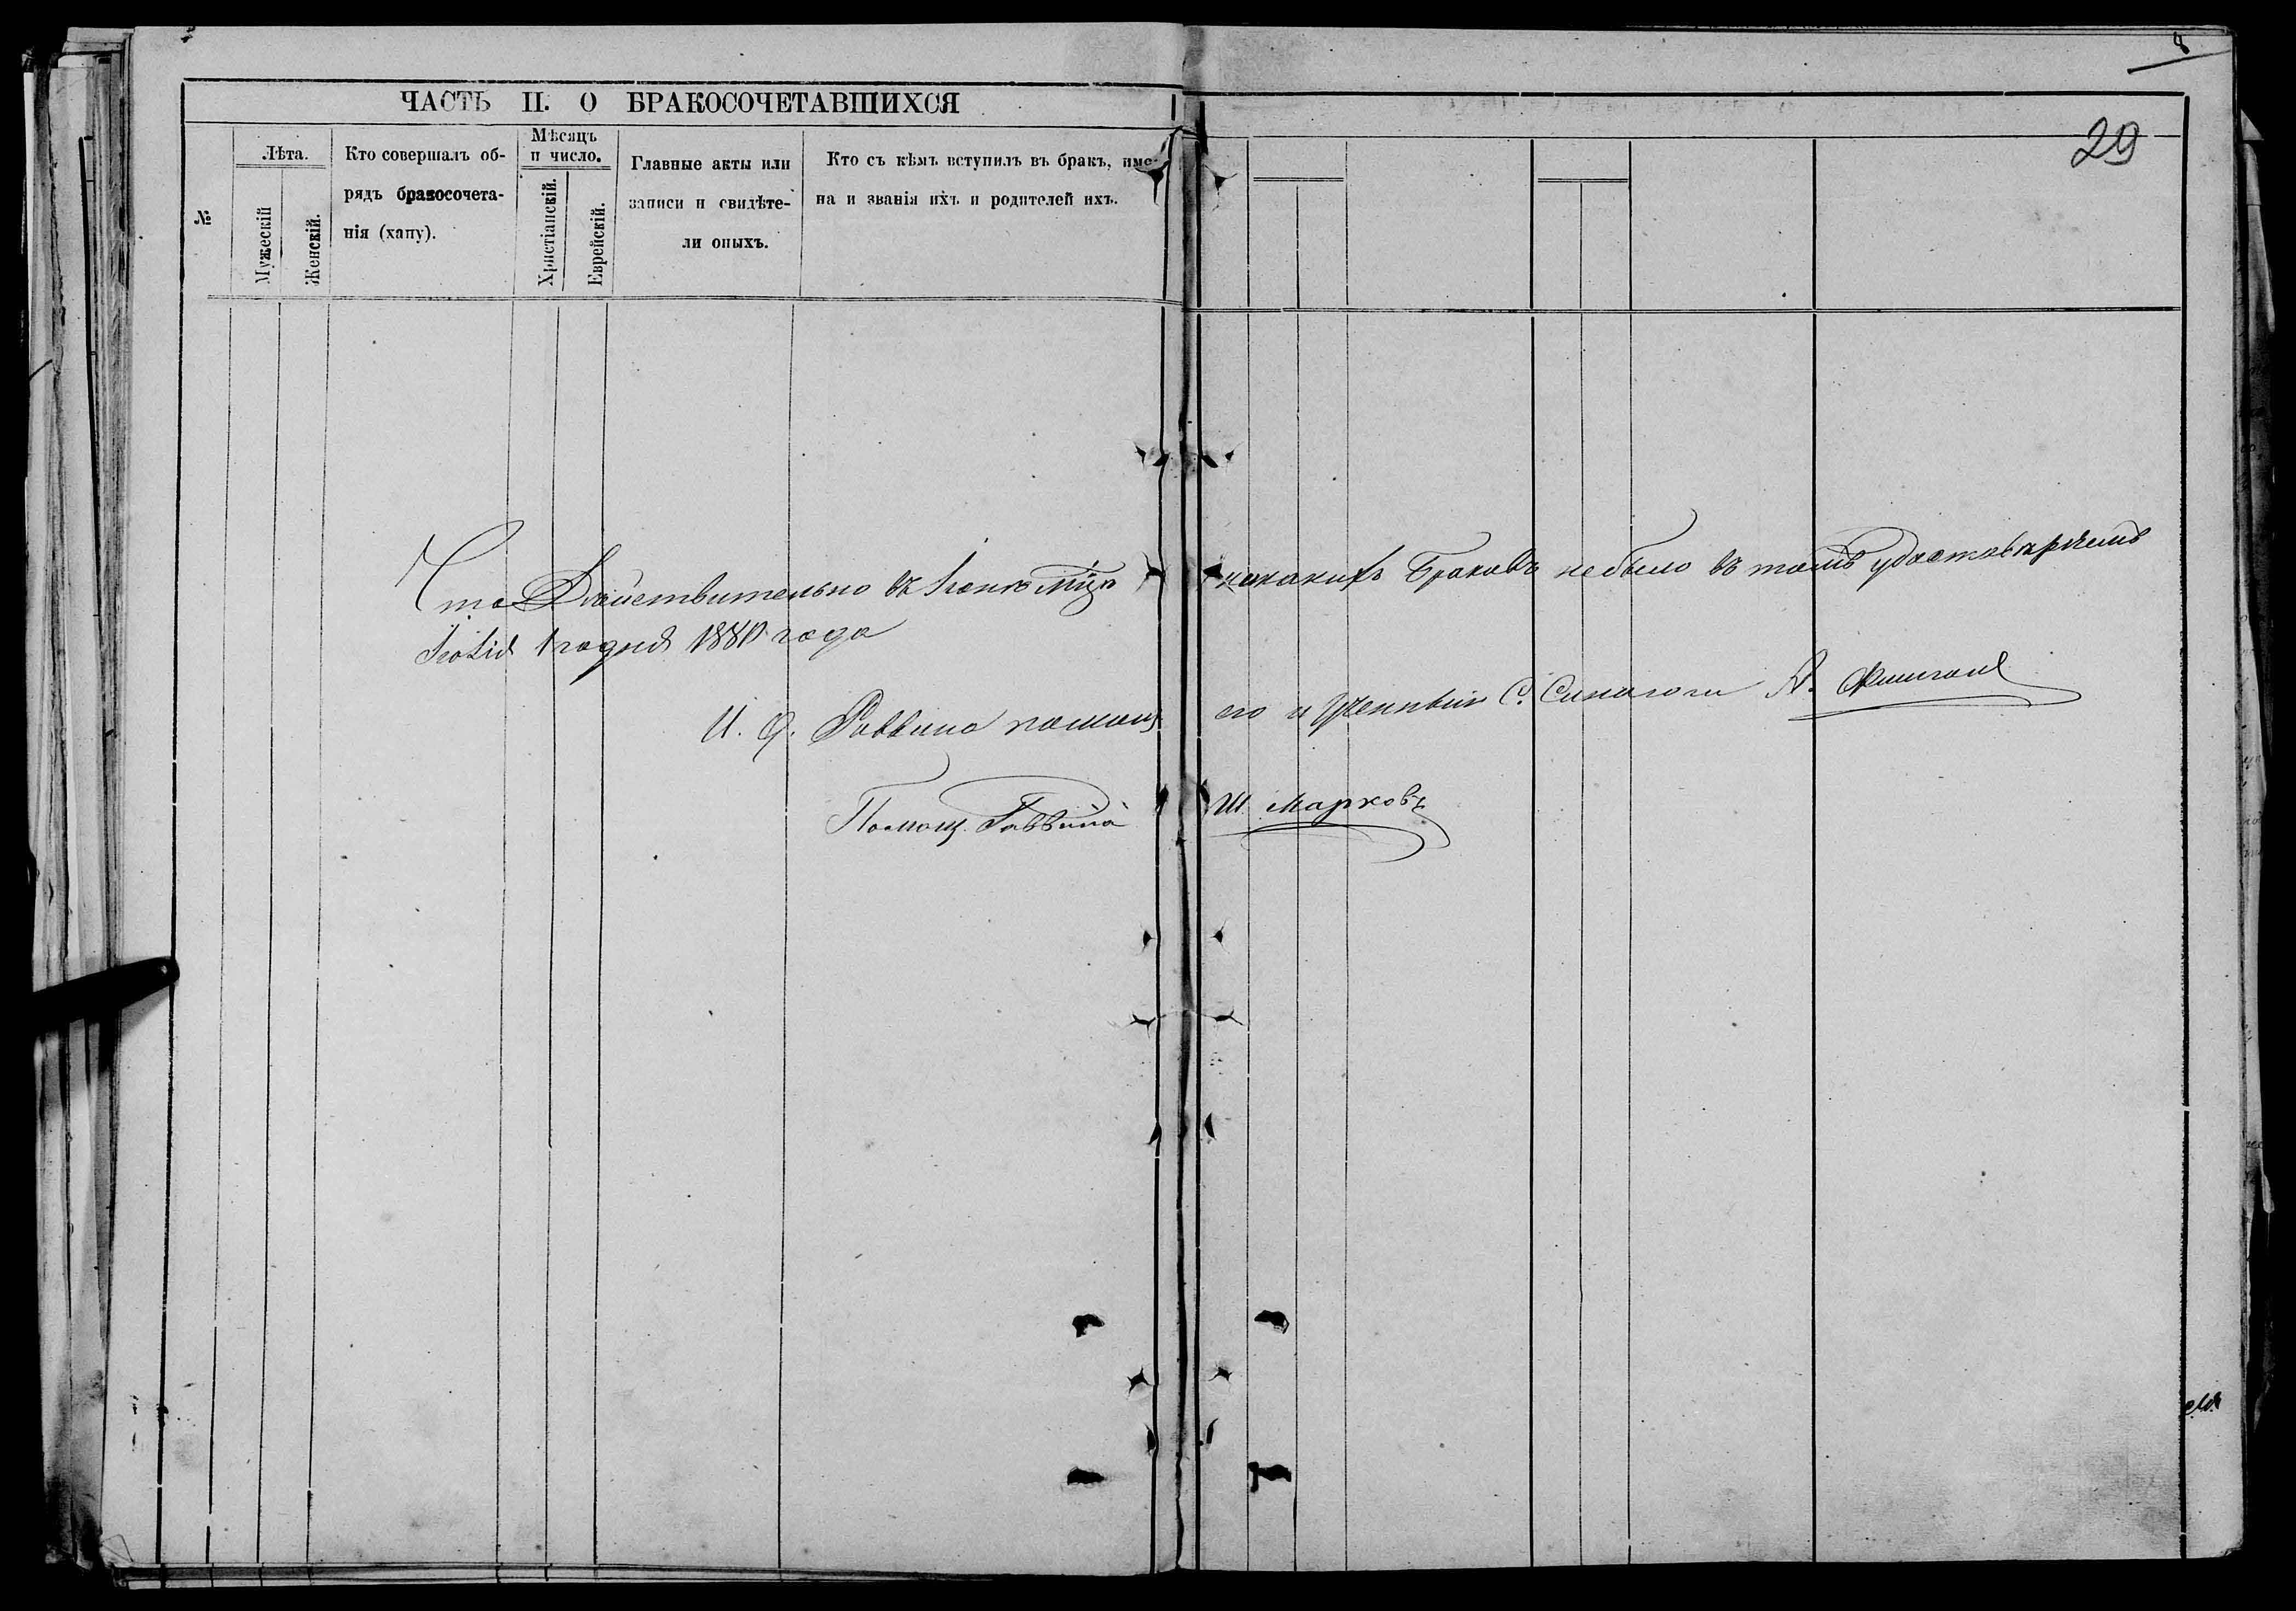 8
29
ЧАСТЬ II. О БРАКОСОЧЕТАВШИХСЯ
№
Лѣта.
Мужескій
Женскій.
Кто совершалъ об-
рядъ бракосочета-
нія (хапу).
Мѣсяцъ
и число.
Христіанскій.
Еврейскій.
Главные акты или
записи и свидѣте-
ли оныхъ.
Кто съ кѣмъ вступилъ въ бракъ, име-
на и званія ихъ и родителей ихъ.
Что Дѣйствительно въ Іюнѣ мцѣ никакихъ Браковъ небыло въ томъ удостовѣряемъ
1 дня 1880 года
И. Д. Раввина помощ его и Ученный С. Синагоги А.
Помощ. Раввина Ш. Марковъ